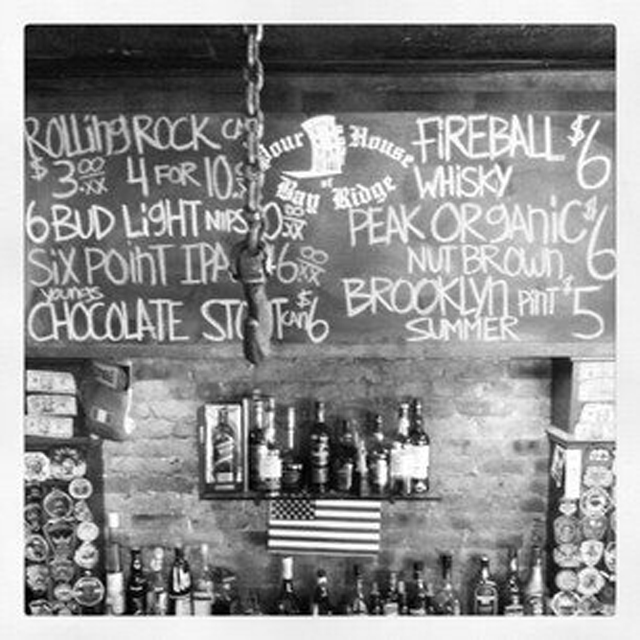 Rolling Rock
$3.00 4 FOR 10
6 Bud Light Nips
Six Point IPA 6.00
Youngs
Chocolate Stout can $6
Pour House
of
Bay Ridge
Fireball $6
Whisky
Peak Organic $6
Nut Brown
Brooklyn Pint $5
Summer